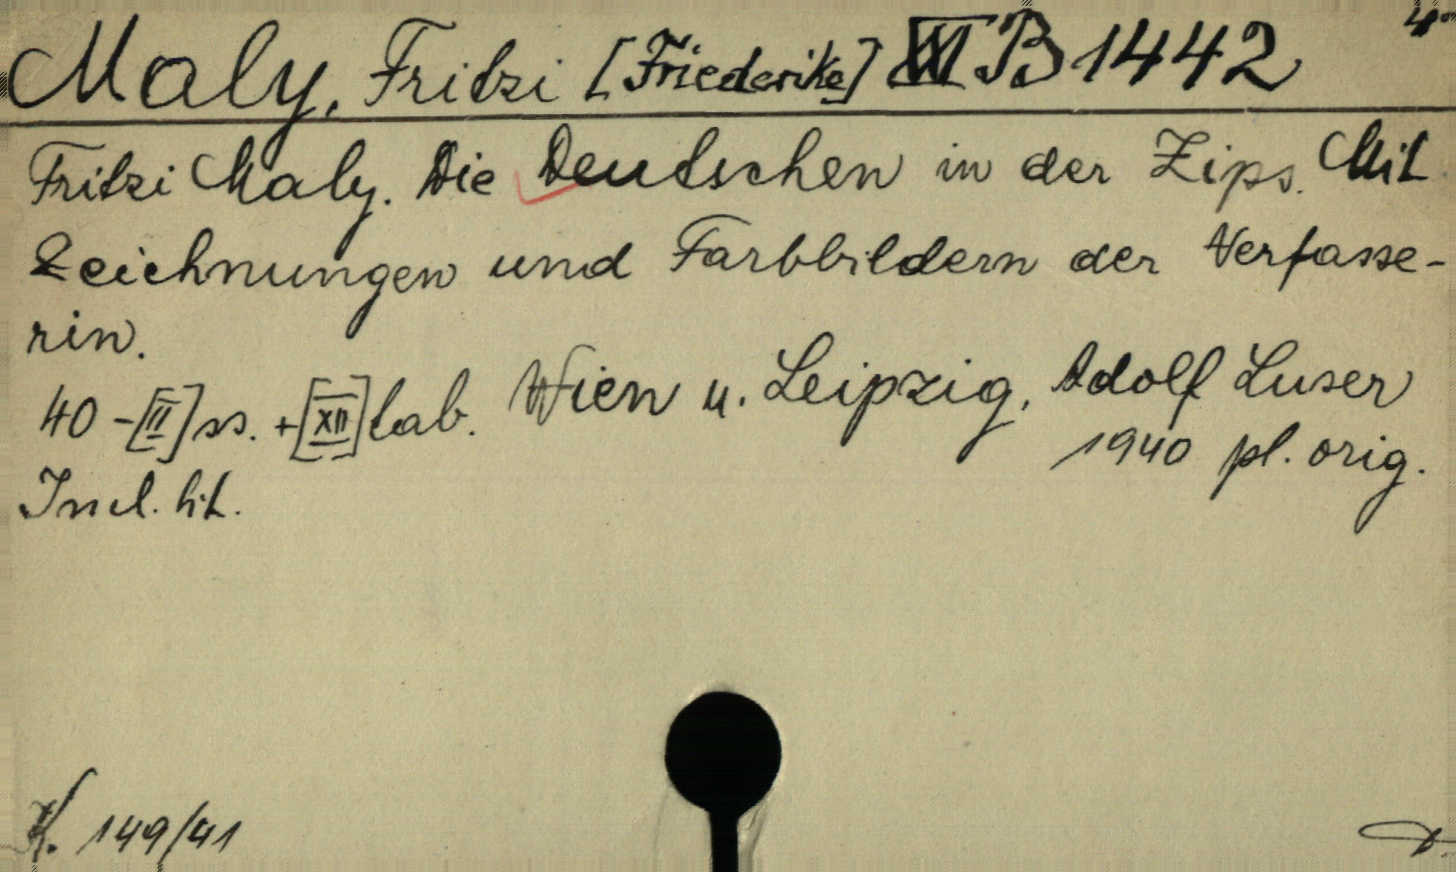 Maly, Fritzi [Friederike] XII B 1442 4°
Fritzi Maly. Die Deutschen in der Zips. Mit
Zeichnungen und Farbbildern der Verfasse-
rin.
40-[II] ss. +[XII] tab. Wien u. Leipzig, Adolf Luser
1940 pl. orig.
Incl. lit.
K. 149/41